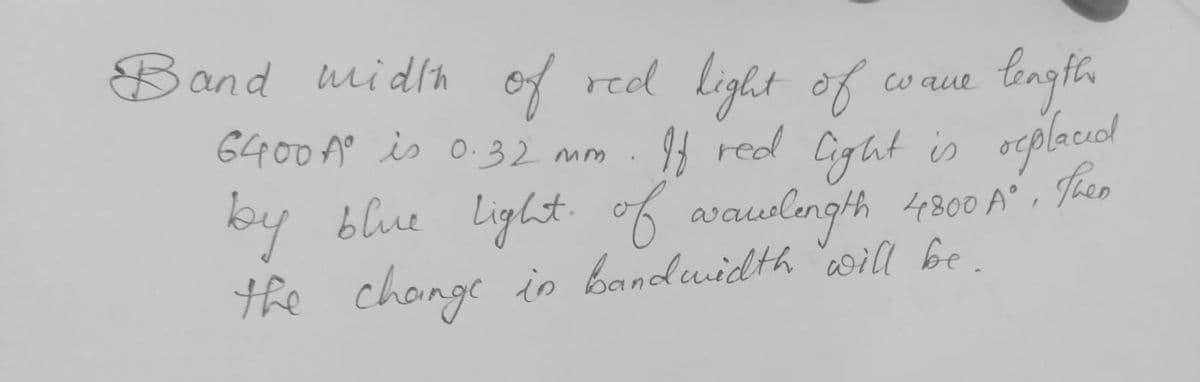 Band width of red light of wave length
6400 A° is 0.32 mm. If red light is replaced
by blue light. of wavelength 4800 A°, then
the change in bandwidth will be.